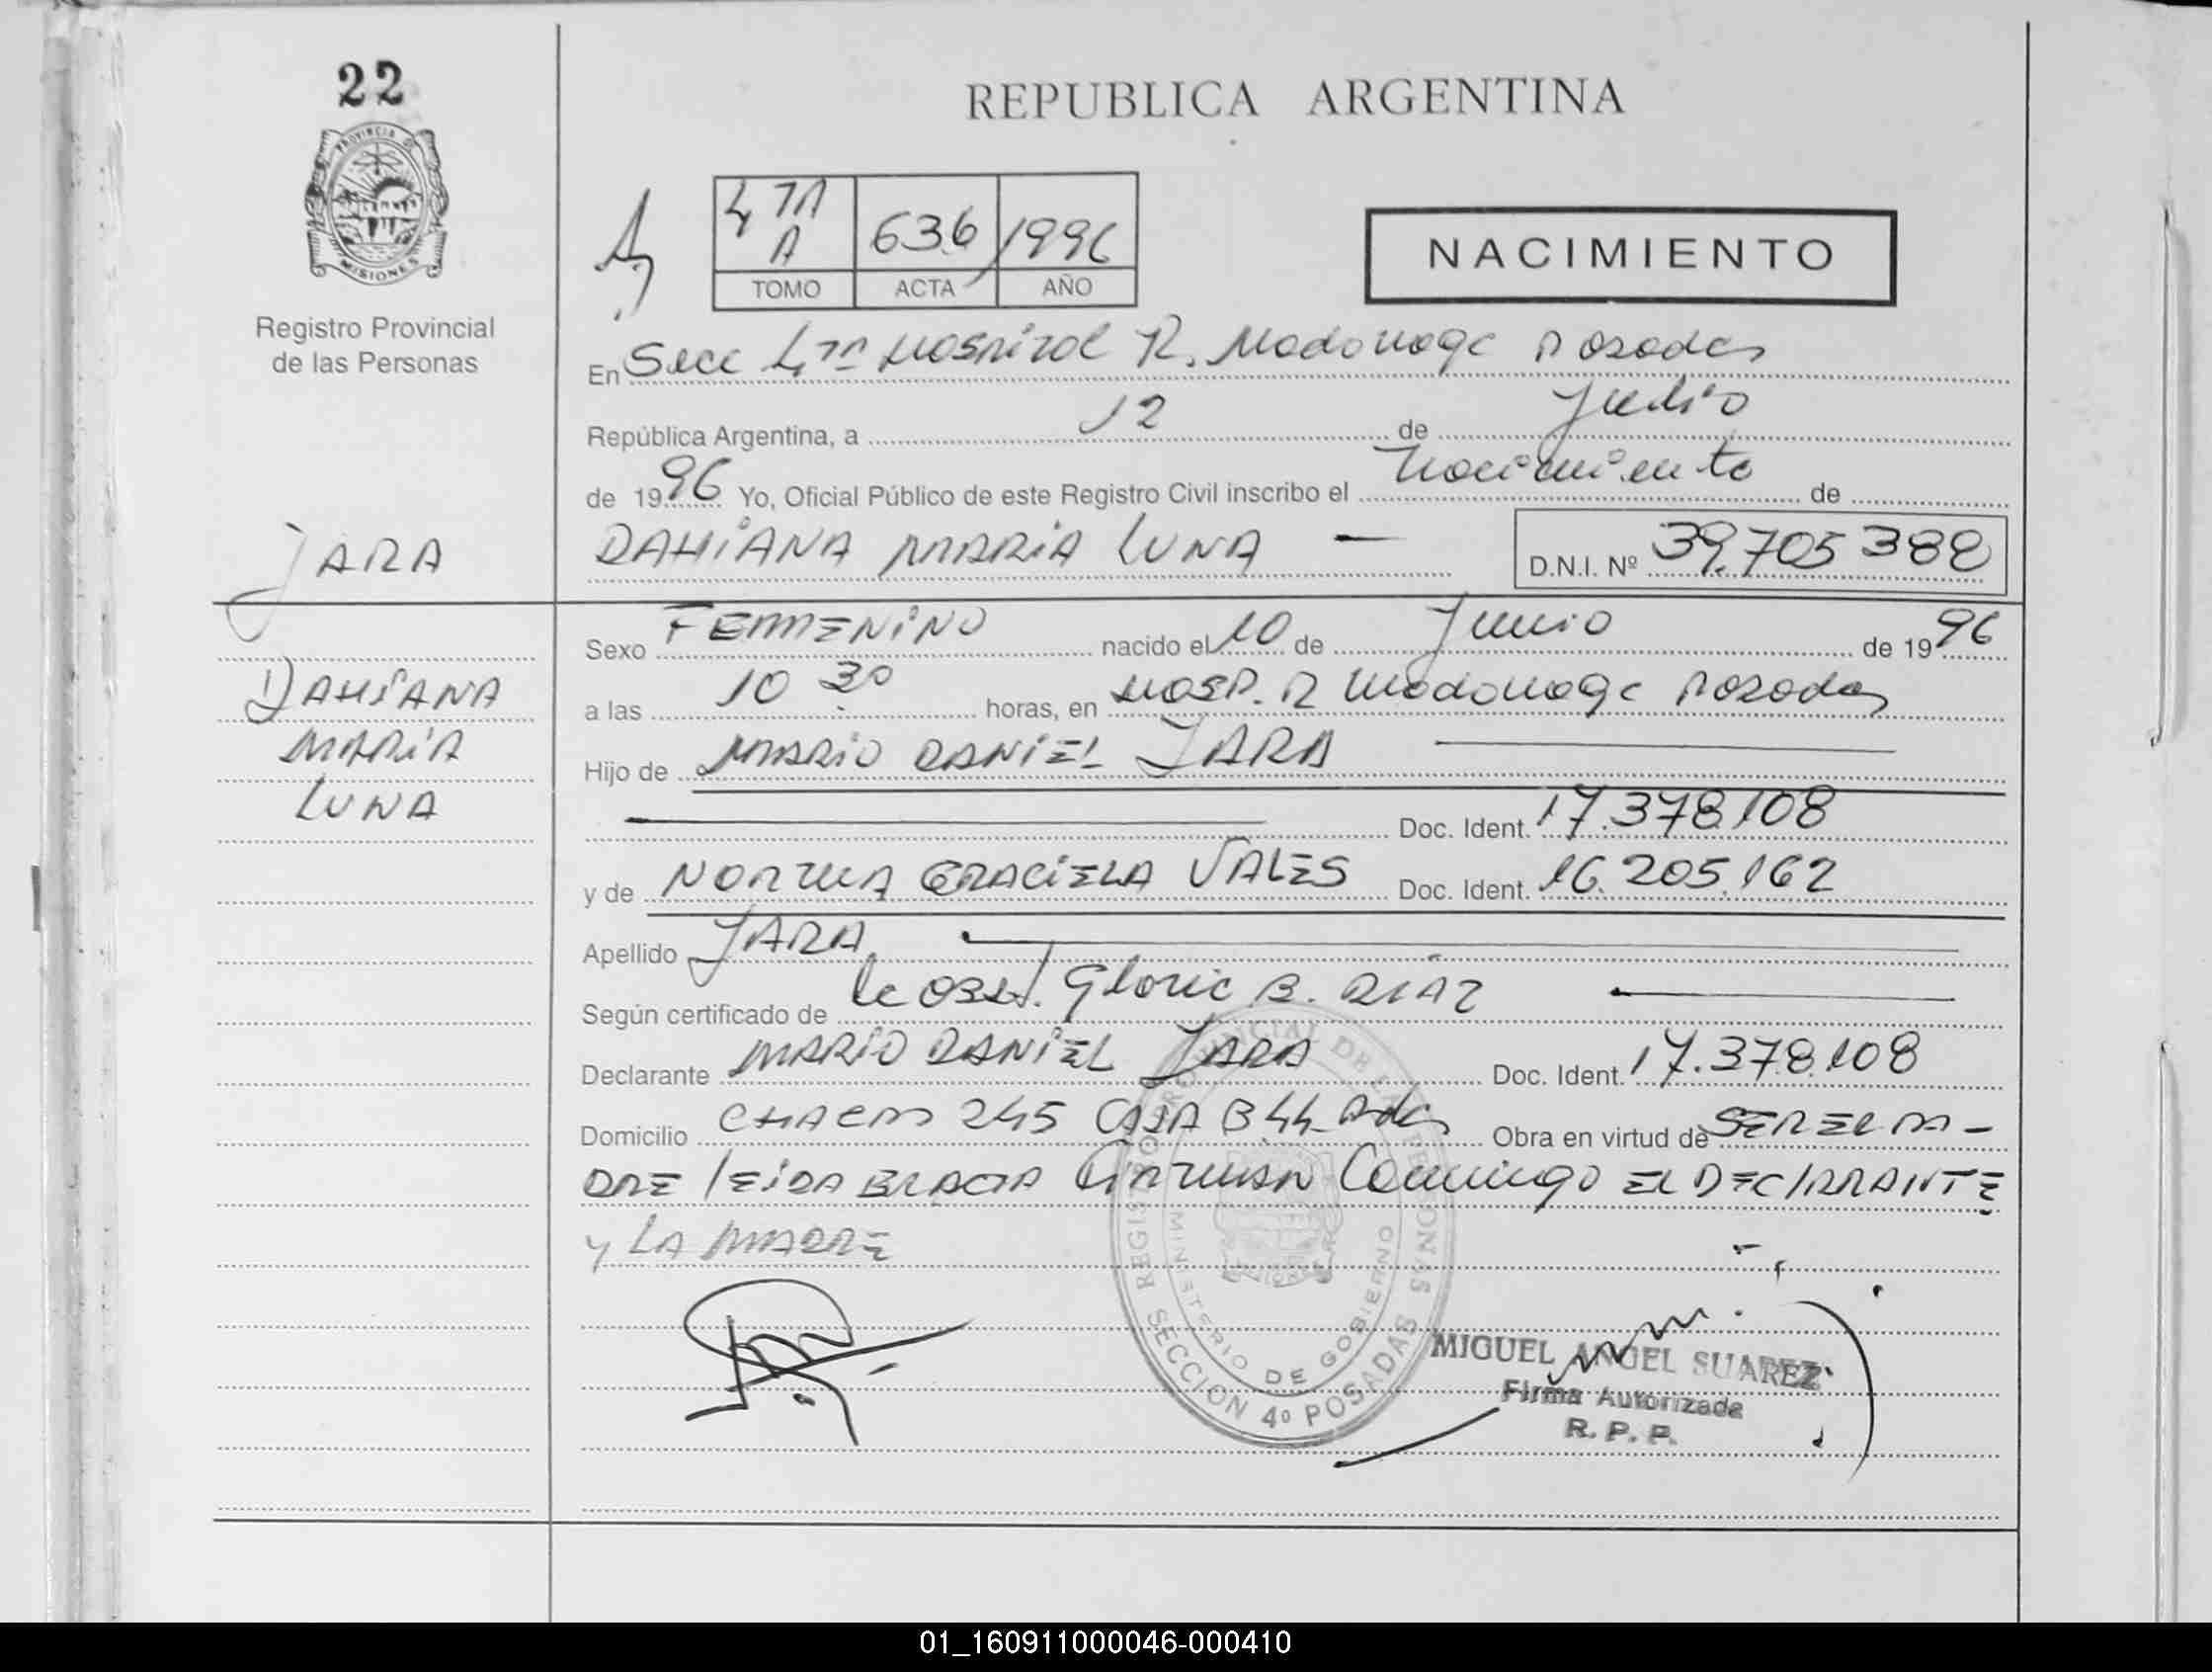 22
PROVINCIA DE
MISIONES
Registro Provincial
de las Personas
REPUBLICA ARGENTINA
4 TA A 636 1996
TOMO ACTA AÑO
NACIMIENTO
En Secc 4ta Hospital R. Madariaga Posadas
República Argentina, a 12 de Julio
de 1996 Yo, Oficial Público de este Registro Civil inscribo el Nacimiento de
DAHiANA MARiA LUNA — D.N.I. Nº 39.705 388
JARA
DAHiANA
MARiA
LUNA
Sexo FEMENiNO nacido el 10 de Junio de 1996
a las 10 30 horas, en HOSP. R Madariaga Posadas
Hijo de MARiO DANiEL JARA
Doc. Ident. 17.378.108
y de NORMA GRACiELA VALES Doc. Ident. 16.205.162
Apellido JARA
Según certificado de la OBST. Gloria B. DIAZ
Declarante MARiO DANiEL JARA Doc. Ident. 17.378.108
Domicilio CHACRA 245 CASA B 44 Pdas Obra en virtud de SER EL PA-
DRE LEIDA EL ACTA FIRMAN Conmigo EL DECLARANTE
y LA MADRE
REGISTRO PROVINCIAL DE LAS PERSONAS
MINISTERIO DE GOBIERNO
SECCION 4º POSADAS
MIGUEL ANGEL SUAREZ
Firma Autorizada
R. P. P.
01_160911000046-000410